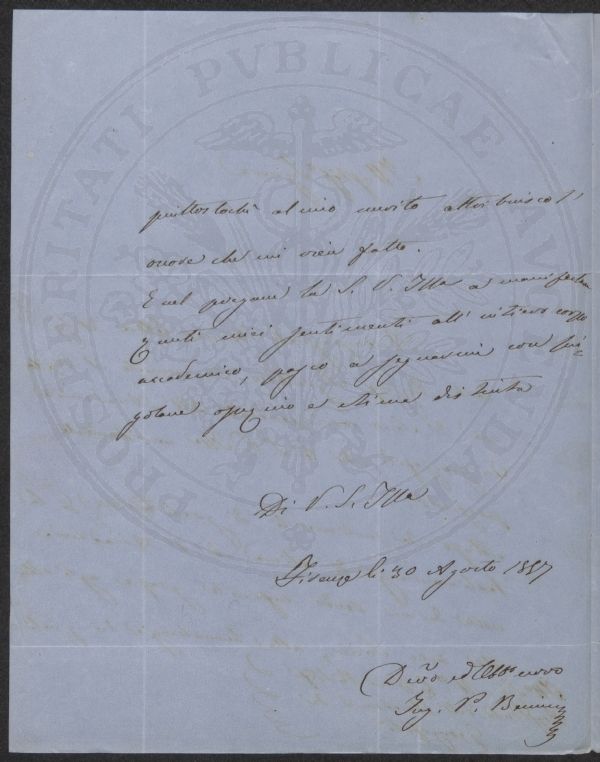 PROSPERITATI PVBLICAE AVGENDAE
piuttostochè al mio merito attribuisco l'
onore che mi vien fatto.
E nel pregare la S. V. Illa a manifestare
questi miei sentimenti all' intiero corpo
accademico, passo a segnarmi con sin=
golare ossequio e stima distinta
Di V. S. Illa
Firenze li 30 Agosto 1857
Devo ed Obbmo servo
Ing. P. Benini